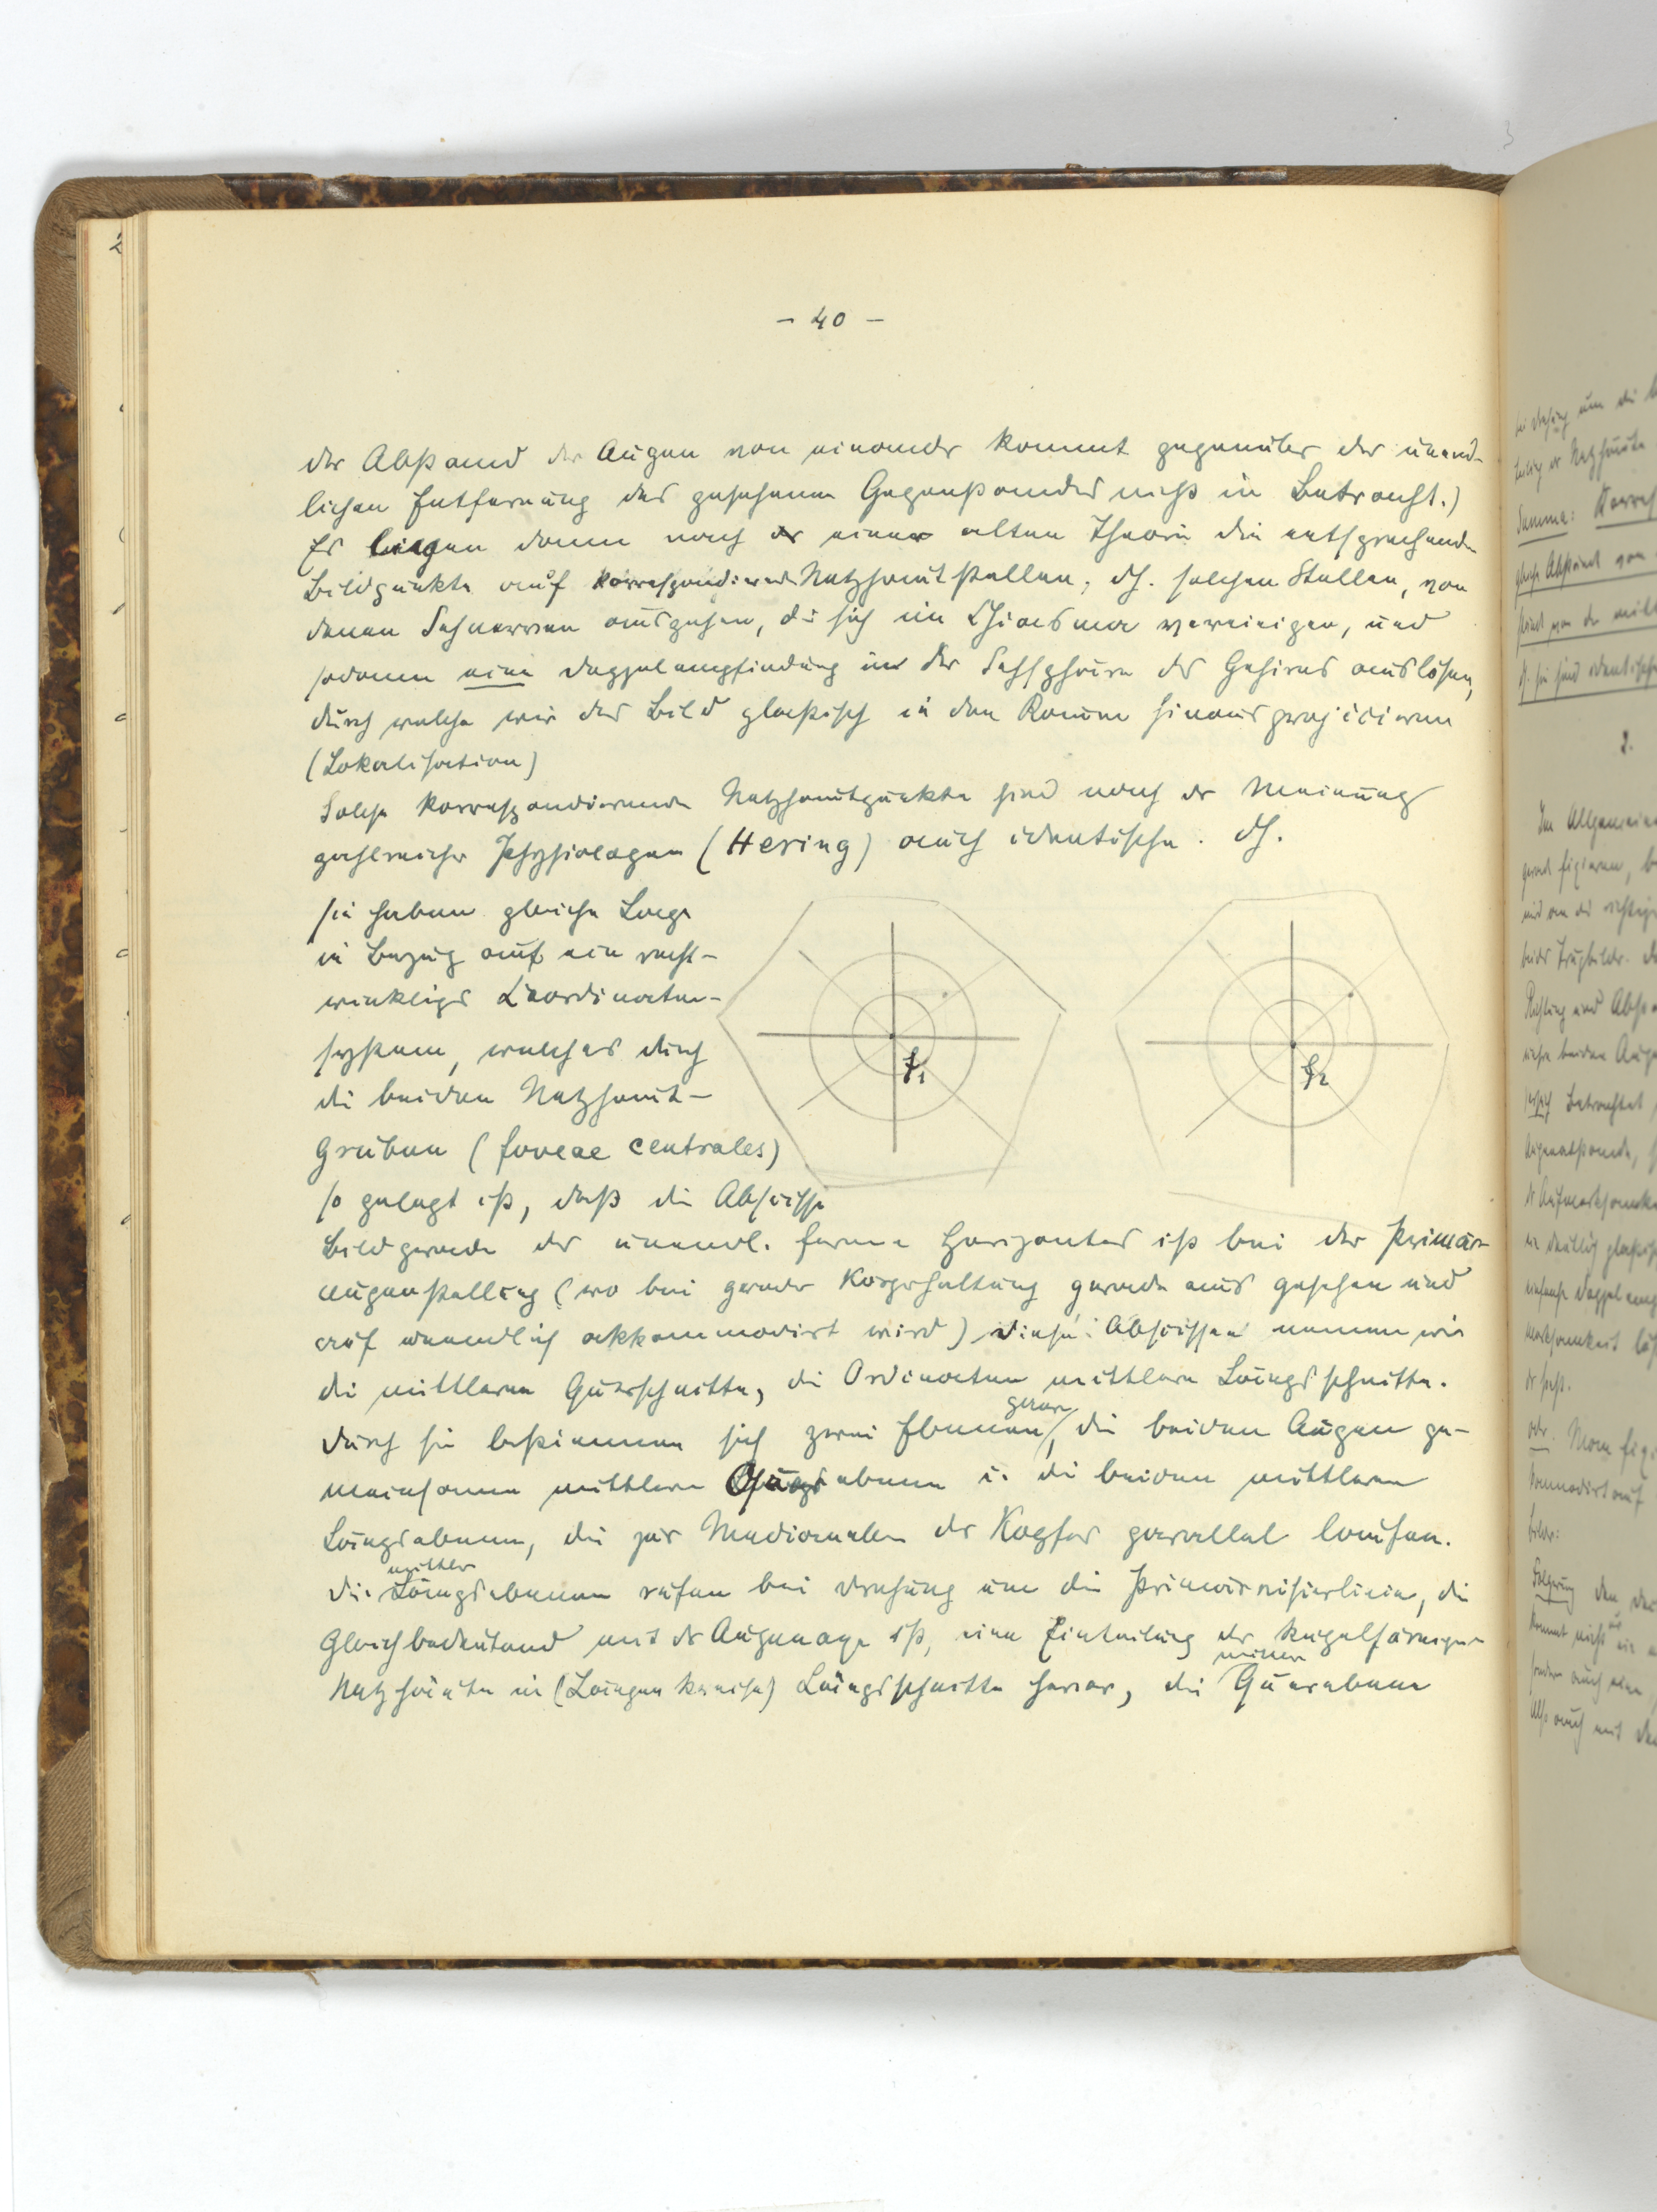 - 40 -
der Abstand der Augen von einander kommt gegenüber der unend-
lichen Entfernung des gesehenen Gegenstandes nicht in Betracht.)
Es liegen dann nach einer alten Theorie die entsprechenden
Bildpunkte auf korrespondierenden Netzhautstellen, dh. solchen Stellen, von
denen Sehnerven ausgehen, die sich im Chiasma vereinigen, und
sodann eine Doppelempfindung in der Sehsphäre des Gehirns auslösen,
durch welche wir das Bild plastisch in den Raum hinausprojicieren
(Lokalisation)
Solche korrespondierende Netzhautpunkte sind nach der Meinung
zahlreicher Physiologen (Hering) auch identische. dh.
sie haben gleiche Lage
in Bezug auf ein recht-
winkliges Coordinaten-
system, welches durch
die beiden Netzhaut-
gruben (foveae centrales)
so gelegt ist, daß die Abscisse
f1
f2
Bildgerade des unendl. fernen Horizontes ist bei der Primär-
augenstellung (wo bei gerader Kopfhaltung gerade aus gesehen und
auf unendlich akkommodirt wird) diese Abscissen nennen wir
die mittleren Querschnitte, die Ordinaten mittlere Längsschnitte.
Durch sie bestimmen sich zwei Ebenen, die beiden Augen ge-
meinsame mittlere ebene u. die beiden mittleren
Längsebenen, die zur Medianebene des Kopfes parallel laufen.
mittler
Die Längsebenen rufen bei Drehung um die Primärvisierlinie, die
gleichbedeutend mit der Augenaxe ist, eine Einteilung der kugelförmigen
Netzhäute in (Längenkreise) Längsschnitte hervor, die Querebene